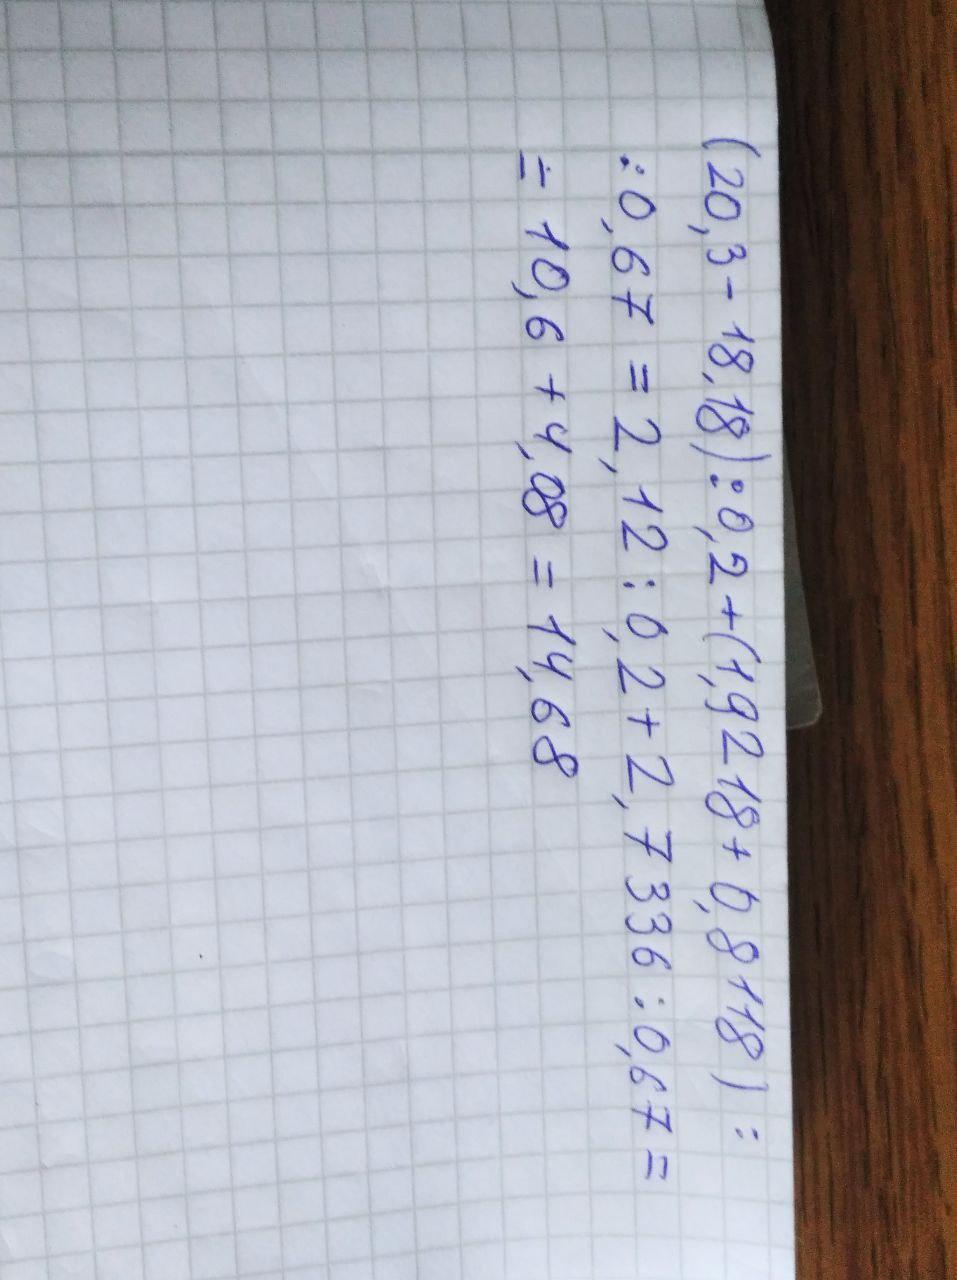 (20,3 - 18,18) : 0,2 + (1,9218 + 0,8118) :
: 0,67 = 2,12 : 0,2 + 2,7336 : 0,67 =
= 10,6 + 4,08 = 14,68